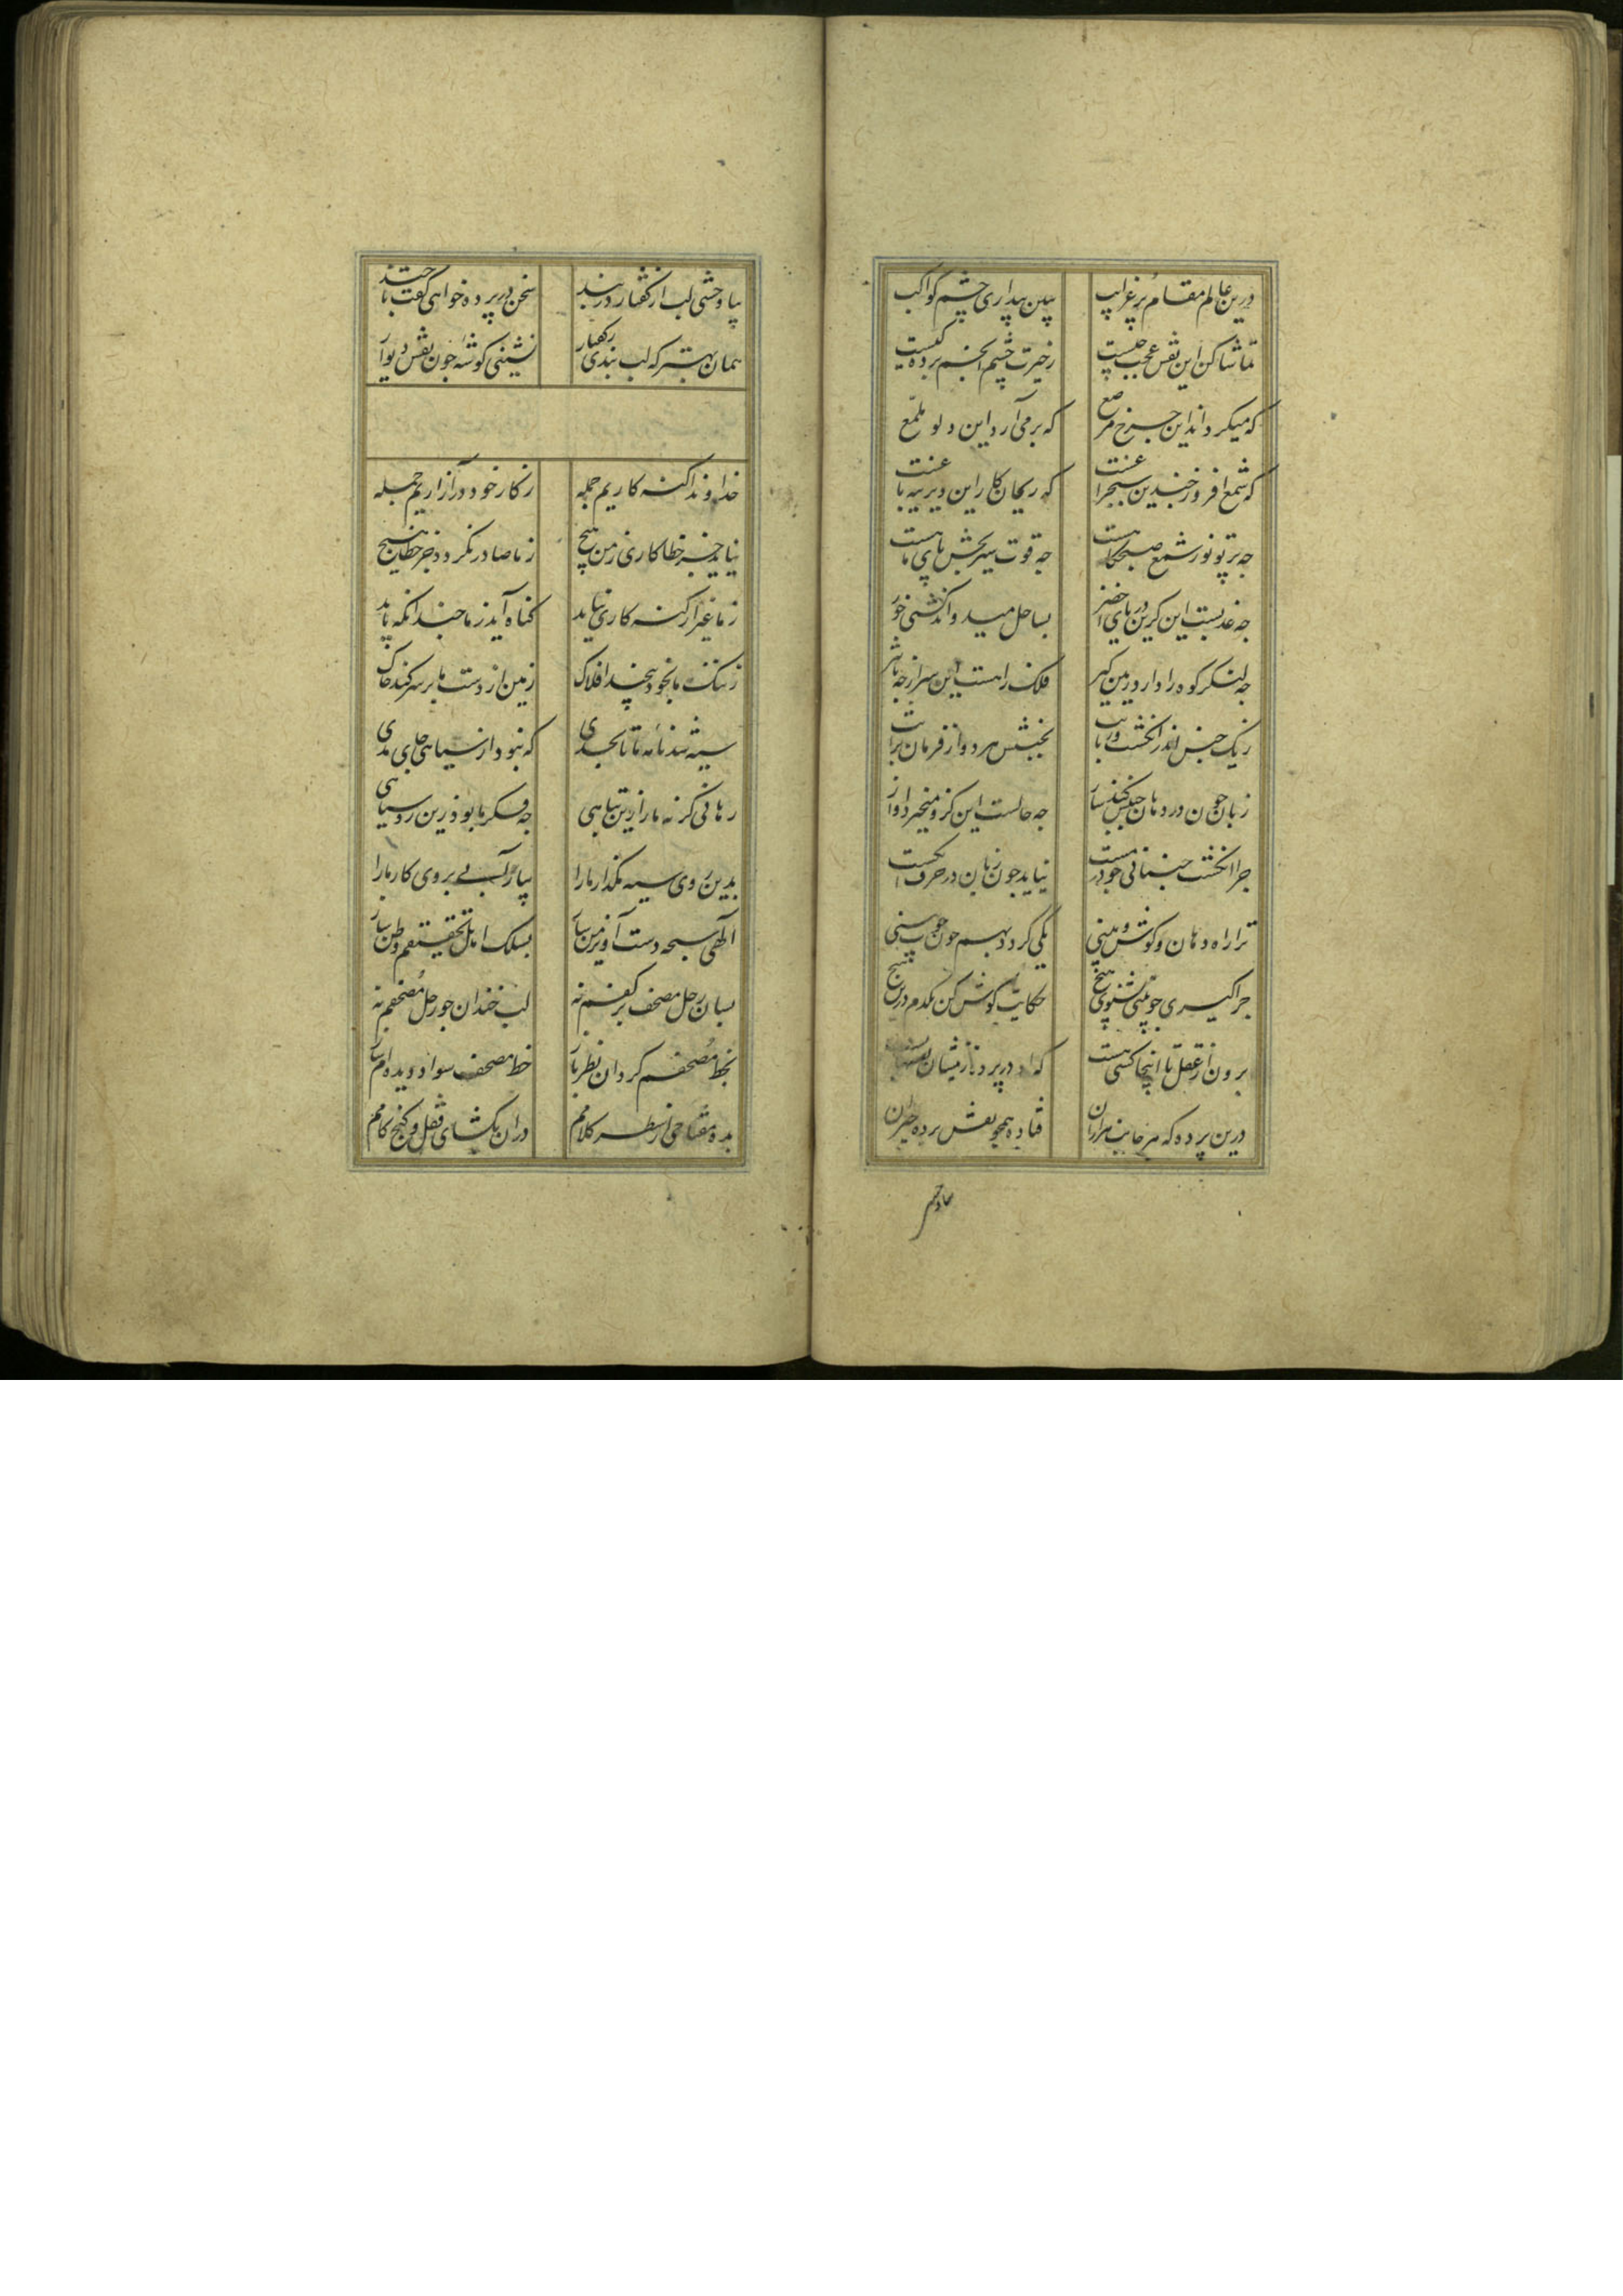 درین عالم مقام پر غرایب ببین بیداری چشم کواکب
تماشا کن این نقش عجب چیست ز حیرت چشم انجم برده کیست
که میکرداند این چرخ مرصع که برمی آرد این دلو ملمع
که شمع افروز چندین منجرا عنت که ریحان کار این دیرینه باغنت
چه پرتو نور شمع صبحکاهست چه قوت سیربخش پای ماهست
چه غدبست این کزین دریای اخضر بساحل میدواند کشتی خور
چه لنکر کوه را دارد زمین کیر فلک را هست این سیر از چه تاثیر
ز یک جنس اند انکشت و زبانت بجنبش هر دو از فرمان برانت
زبان چون در دهان جنبش کند ساز چه حالست این کزو میخیزد آواز
چرا انکشت جنبانی چو در مست نیاید چون زبان در حرف انکشت
ترا راه دهان و کوش و بینی یکی کردد بهم چون خوب بینی
چرا کیری چو بینی نشنوی هیچ حکایت کوش کن یکدم درین پیچ
برون از عقل تا اینجا کسی هست که او در پرده زینشان نقشها بست
درین پرده که هر جانب هزاران فتاده همچو نقش پرده حیران
بیا وحشی
بیا وحشی لب از کفتار در بند سخن در پرده خواهی کفت تا چند
همان بهتر که لب بندی ز کفتار نشینی کوشه چون نقش دیوار
خداوندا کنه کاریم جمله ز کار خود در آزاریم جمله
نیاید جز خطا کاری ز من هیچ ز ما صادر نکردد جز خطا هیچ
ز ما غیر از کنه کاری نیاید کناه آید ز ما چندانکه باید
ز ننک ما بخود پیچند افلاک زمین از دست ما بر سر کند خاک
سیه شد نامه ما تا بحدی که نبود از سیاهی جای مدی
رهانی کر نه ما را زین تباهی چه فکر ما بود زین رو سیاهی
بدین روی سیه مکذار ما را بیار آبی بروی کار ما را
الهی سبحه دست آویز من ساز بسلک اهل تحقیقم وطن ساز
بسان رحل مصحف بر کفم نه لب خندان چو رحل مصحفم نه
بخط مصحفم کردان نظر باز خط مصحف سواد دیده ام ساز
بده مفتاحی از سطر کلامم در ان بکشای قفل کنج کامم